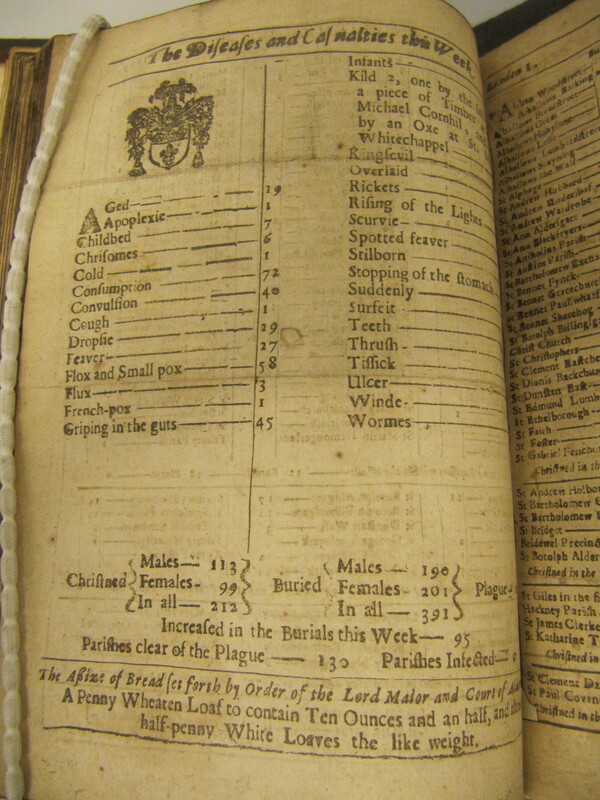 The Diseases and Casualties this Week
Aged 19
Apoplexie 1
Childbed 7
Chrisomes 6
Cold 1
Consumption 72
Convulsion 40
Cough 1
Dropsie 29
Feaver 27
Flox and Small pox 58
Flux 3
French-pox 1
Griping in the guts 45
Infants
Kild 2, one by the
a piece of Timber
Michael Cornhil,
by an Oxe at St.
Whitechappel
Kingsevil
Overlaid
Rickets
Rising of the Lights
Scurvie
Spotted feaver
Stilborn
Stopping of the stomach
Suddenly
Surfeit
Teeth
Thrush
Tissick
Ulcer
Winde
Wormes
Christned { Males — 113 Females - 99 In all — 212 } Buried { Males — 190 Females - 201 In all — 391 } Plague
Increased in the Burials this Week — 95
Parishes clear of the Plague — 130 Parishes Infected — 0
The Assize of Bread set forth by Order of the Lord Maior and Court of
A Penny Wheaten Loaf to contain Ten Ounces and an half, and
half-penny White Loaves the like weight.
London
St Andrew Wardrobe
St Ann Aldersgate
St Ann Blackfryers
St Antholins Parish
St Austins Parish
St Bartholomew
St Bennet Fynck
St Bennet Gracechurch
St Bennet Paulswharf
St Bennet Sherehog
St Botolph Billingsg
Christ Church
St Christophers
St Clement Eastche
St Dionis Backchur
St Dunstan East
St Edmund Lumb
St Ethelborough
St Faith
St Foster
St Gabriel Fenchu
Christned in th
St Andrew Holbor
St Bartholomew
St Bartholomew
St Bridget
Bridewel Precin
St Botolph Alder
Christned in the
St Giles in the fi
Hackney Parish
St James Clerke
St Katharine T
Christned in
St Clement Da
St Paul Coven
Christned in th